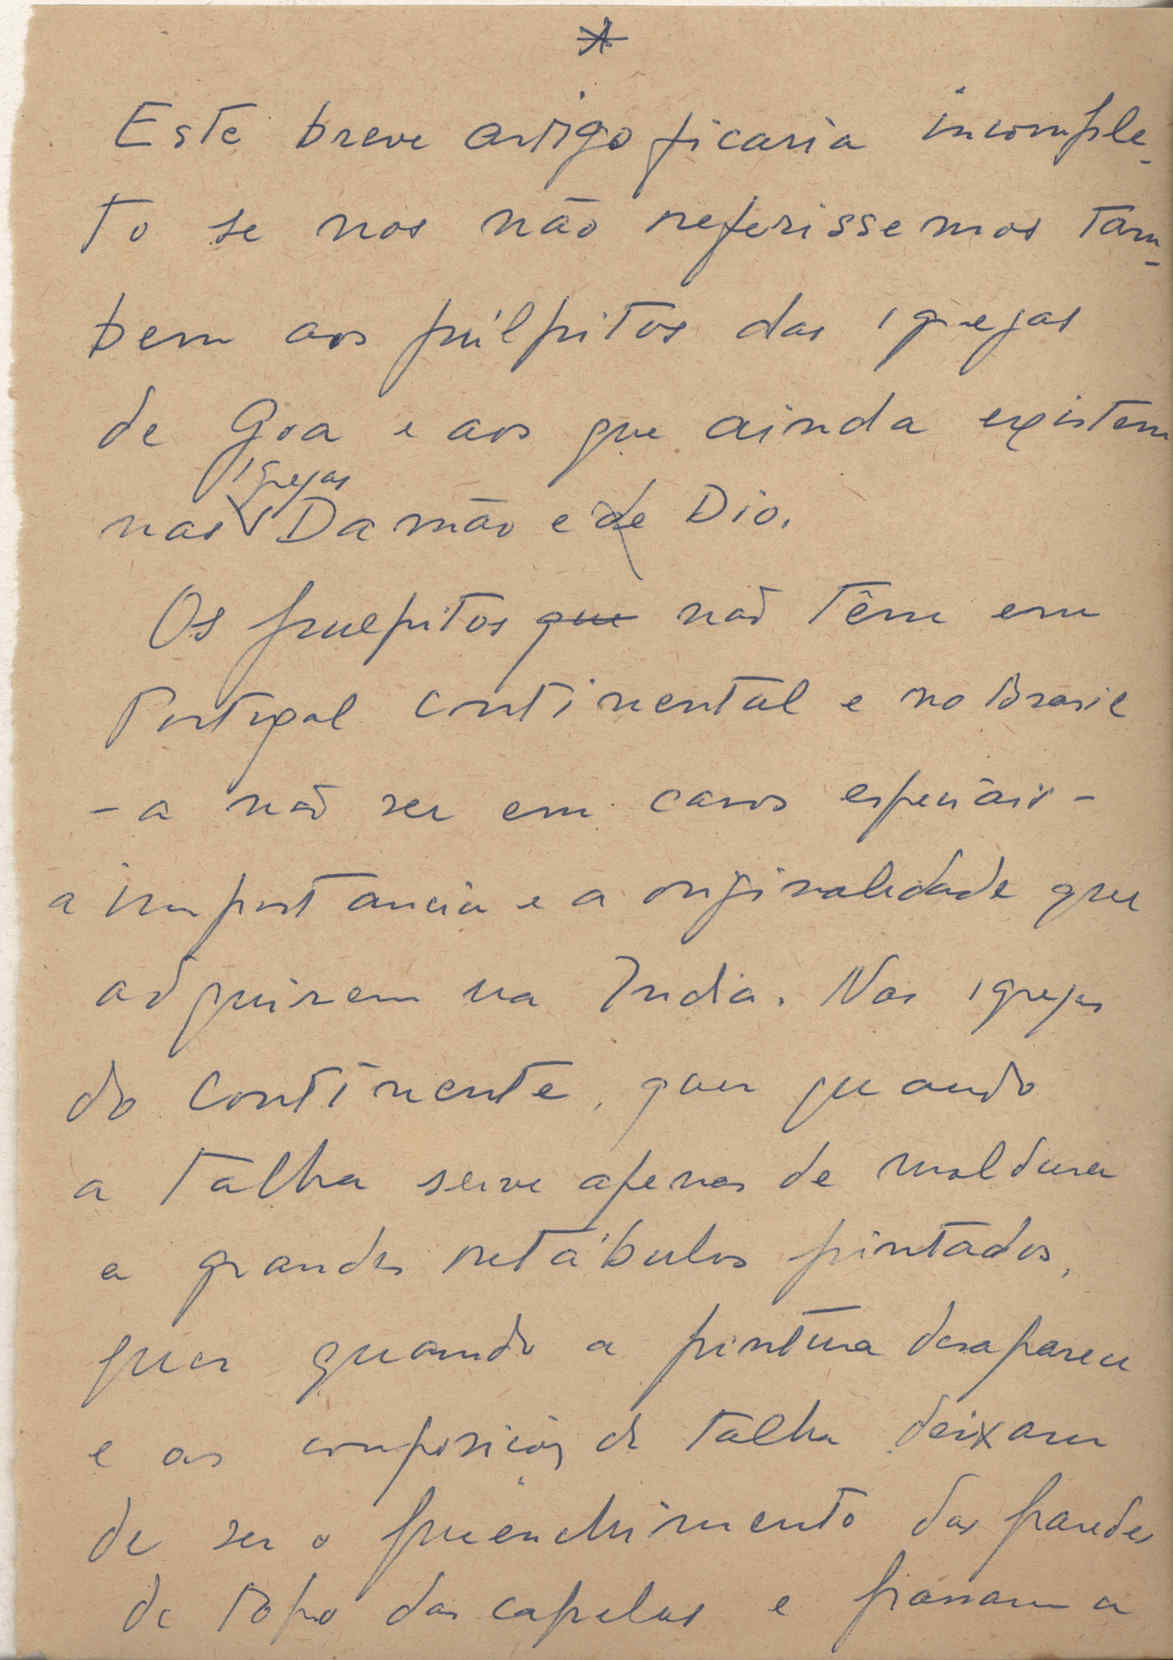 Este breve artigo ficaria incomple-
to se nos não referissemos tam-
bem aos púlpitos das igrejas
de Goa e aos que ainda existem
igrejas
nas Damão e de Dio.
Os pulpitos que não têm em
Portugal continental e no Brasil
- a não ser em casos especiais -
a importancia e a originalidade que
adquirem na India. Nas igrejas
do continente, quer quando
a talha serve apenas de moldura
a grandes retábulos pintados,
quer quando a pintura desaparece
e as composições de talha deixam
de ser o preenchimento das paredes
de topo das capelas e passam a